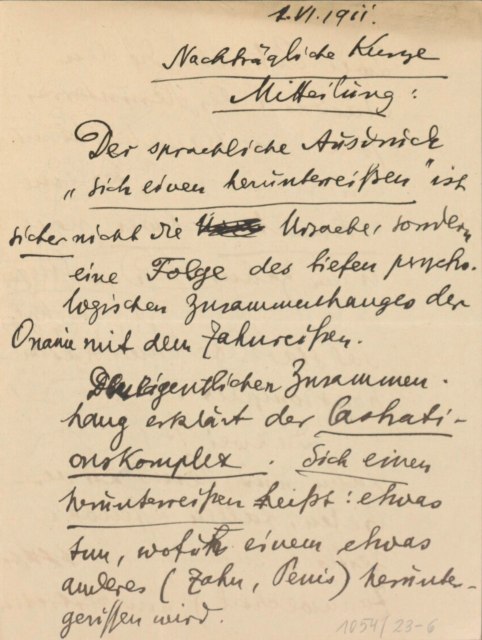 1.VI.1911.
Nachträgliche Kurze
Mitteilung:
Der sprachliche Ausdruck
„sich einen herunterreißen" ist
sicher nicht die Ursache, sondern
eine Folge des tiefen psycho-
logischen Zusammenhanges der
Onanie mit dem Zahnreißen.
Den eigentlichen Zusammen-
hang erklärt der Castrati-
onskomplex. Sich einen
herunterreißen heißt: etwas
tun, wofür einem etwas
anderes (Zahn, Penis) herunter-
gerissen wird.
1054/23-6